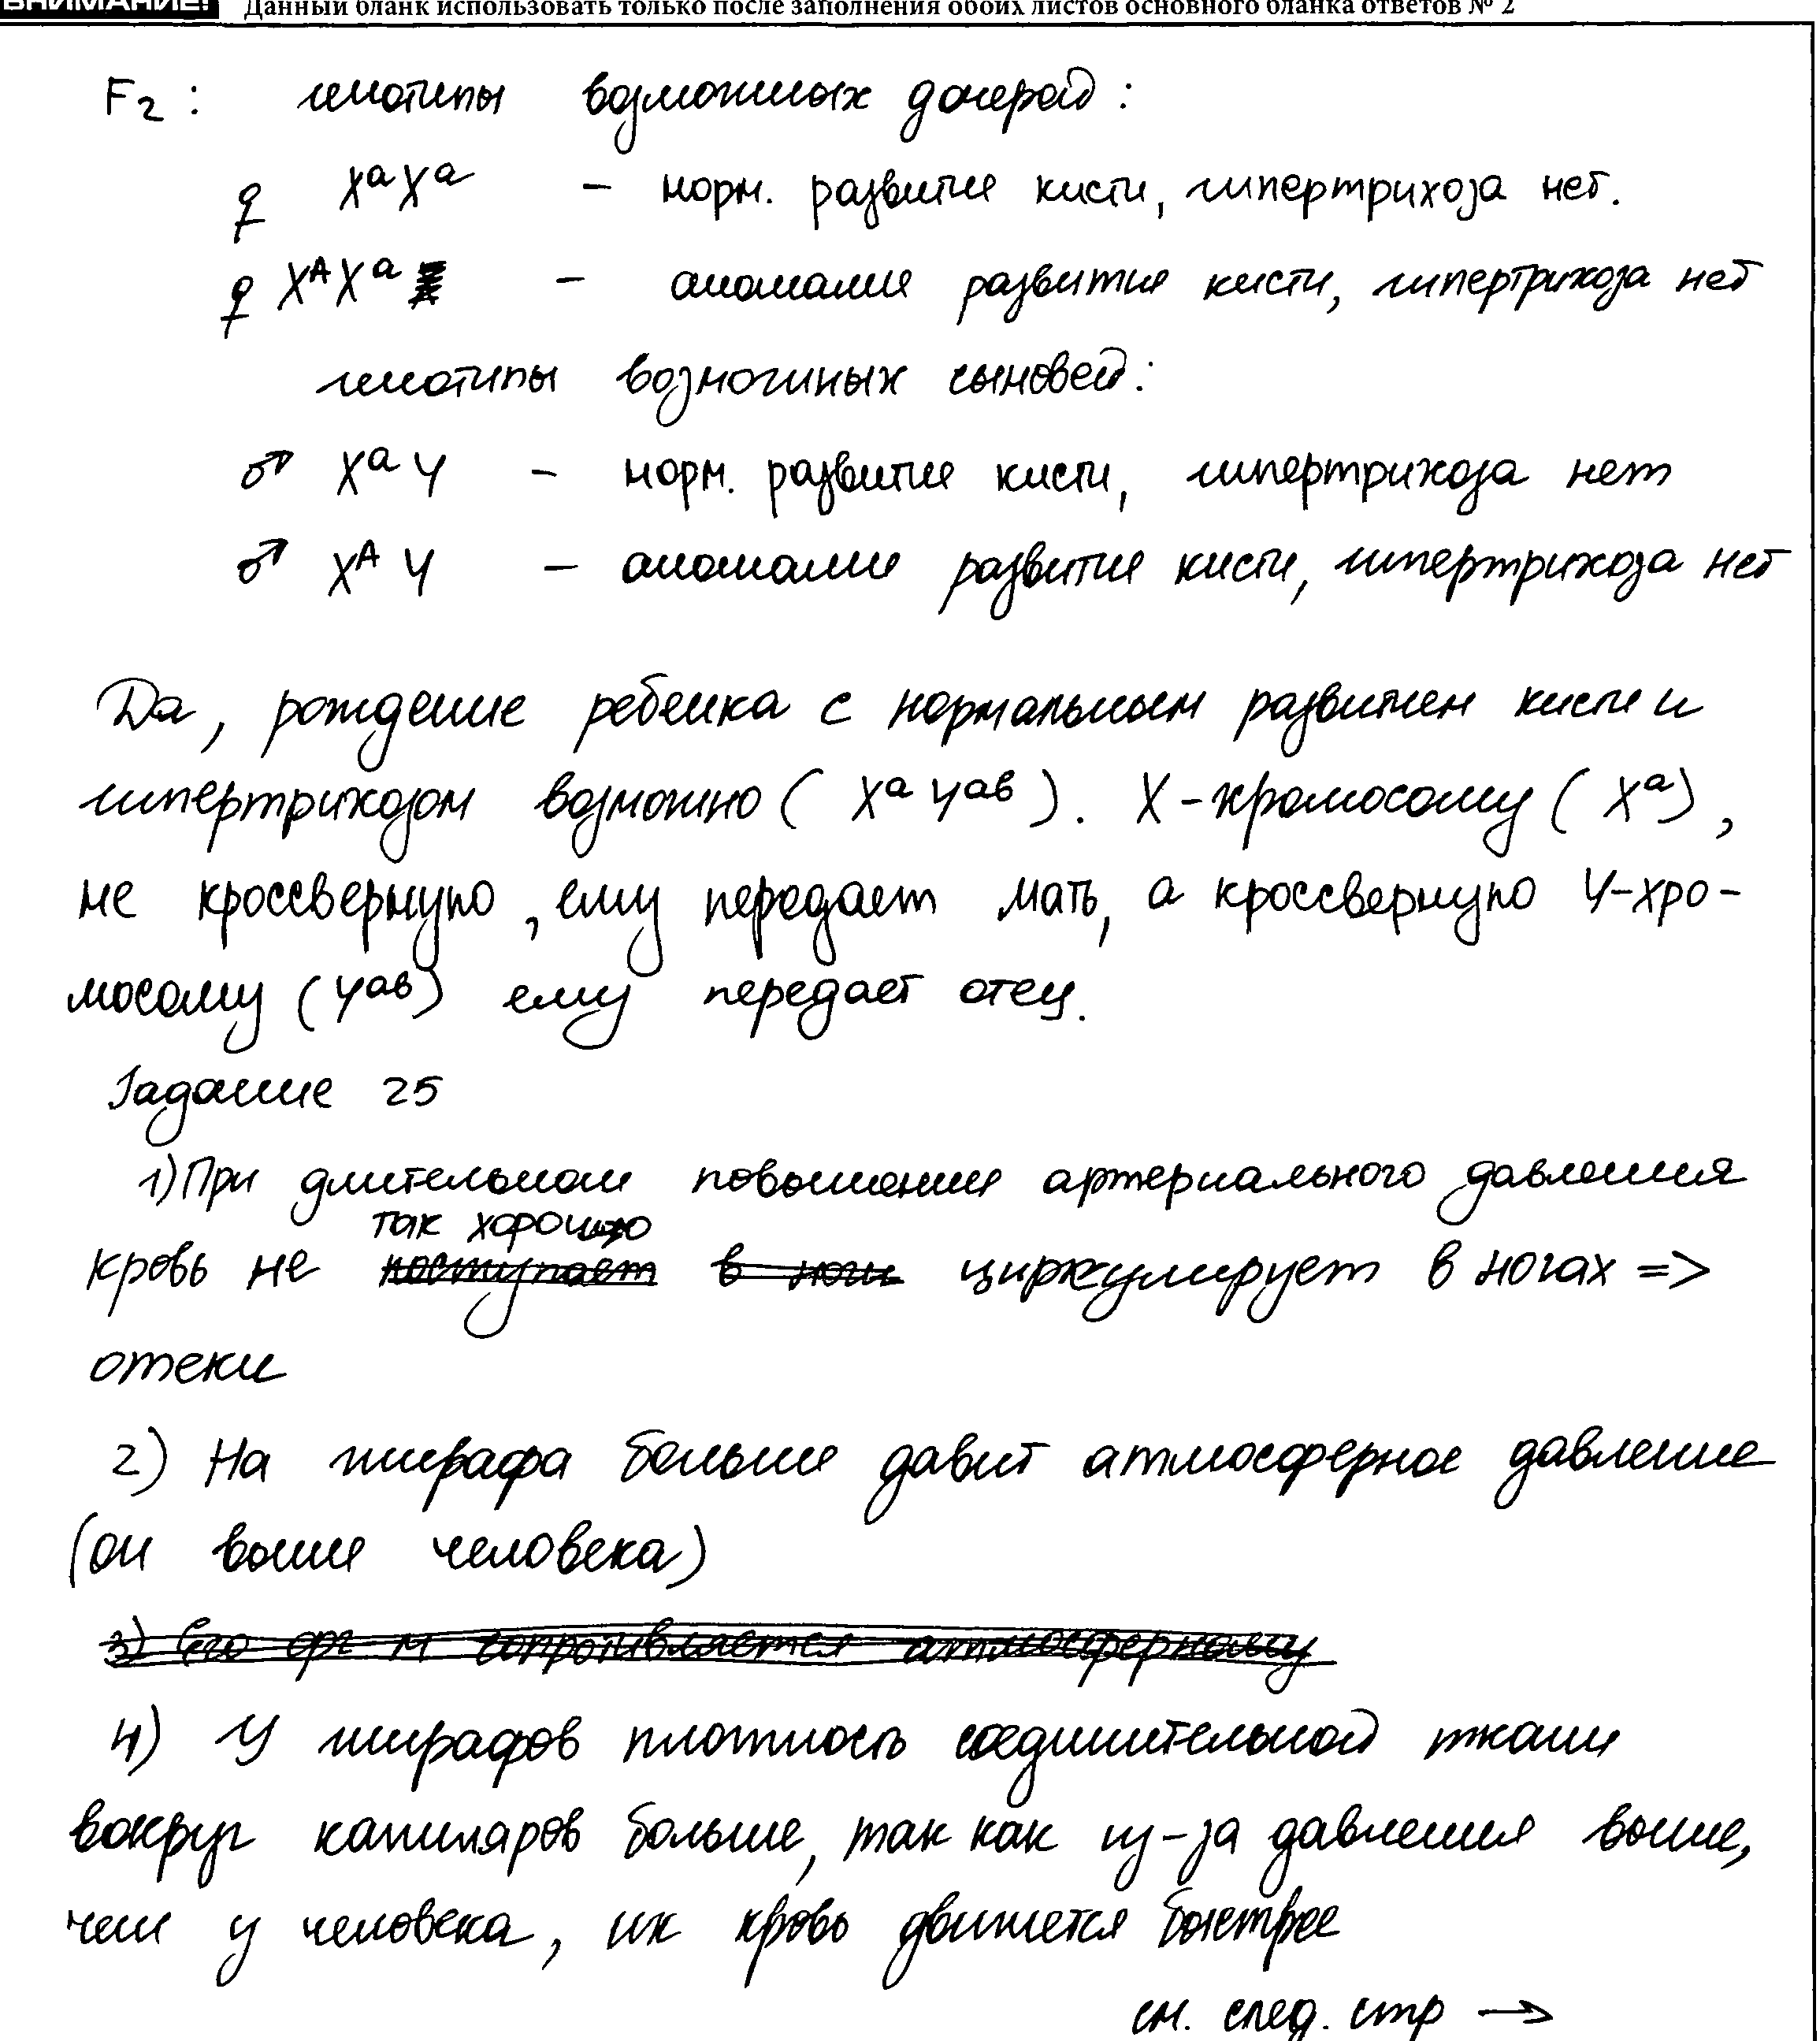 ВНИМАНИЕ! Данный бланк использовать только после заполнения обоих листов основного бланка ответов № 2
F₂ : генотипы возможных дочерей :
♀ XᵃXᵃ – норм. развитие кисти, гипертрихоза нет.
♀ XᴬXᵃ – аномалие развитие кисти, гипертрихоза нет
генотипы возможных сыновей :
♂ XᵃY – норм. развитие кисти, гипертрихоза нет
♂ XᴬY – аномалие развитие кисти, гипертрихоза нет
Да, рождение ребенка с нормальным развитием кисти и
гипертрихозом возможно ( Xᵃ Yᵃᵇ ). X-хромосому ( Xᵃ ),
не кроссверную, ему передает мать, а кроссверную Y-хро-
мосому ( Yᵃᵇ ) ему передает отец.
Задание 25
1) При длительном повышении артериального давления
так хорошо
кровь не поступает в ноги циркулирует в ногах =>
отеки
2) На жирафа больше давит атмосферное давление
(он выше человека)
3) Его орг-м сопротивляется атмосферному
4) У жирафов плотность соединительной ткани
вокруг капиляров больше, так как из-за давления выше,
чем у человека, их кровь движется быстрее
см. след. стр →